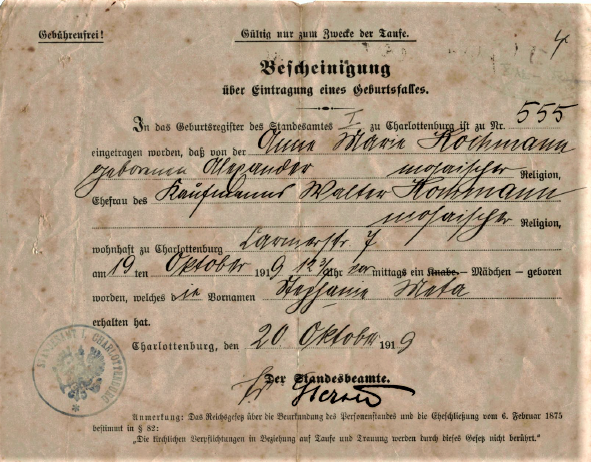 Gebührenfrei!
Gültig nur zum Zwecke der Taufe.
4
Bescheinigung
über Eintragung eines Geburtsfalles.
In das Geburtsregister des Standesamtes I zu Charlottenburg ist zu Nr. 555
eingetragen worden, daß von der Anne Marie Kochmann
geborenen Alexander mosaischer Religion,
Ehefrau des Kaufmanns Walter Kochmann
mosaischer Religion,
wohnhaft zu Charlottenburg Carmerstr 7
am 19 ten Oktober 1919 12 3/4 Uhr vor mittags ein Knabe – Mädchen – geboren
worden, welches die Vornamen Stephanie Meta
erhalten hat.
Charlottenburg, den 20 Oktober 1919
STANDESAMT CHARLOTTENBURG
Der Standesbeamte.
Anmerkung: Das Reichsgesetz über die Beurkundung des Personenstandes und die Eheschließung vom 6. Februar 1875
bestimmt in § 82:
„Die kirchlichen Verpflichtungen in Beziehung auf Taufe und Trauung werden durch dieses Gesetz nicht berührt."